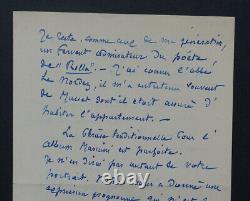 Je reste, comme ceux de ma génération,
un fervent admirateur du poète
de "Rolla". — J'ai connu l'abbé
Le Nordez, il m'a entretenu souvent
de Musset dont il était assuré d'
habiter l'appartement. —
La phrase traditionnelle pour l'
album Mariani est parfaite.
Je n'en dirai pas autant de votre
portrait. a donné une